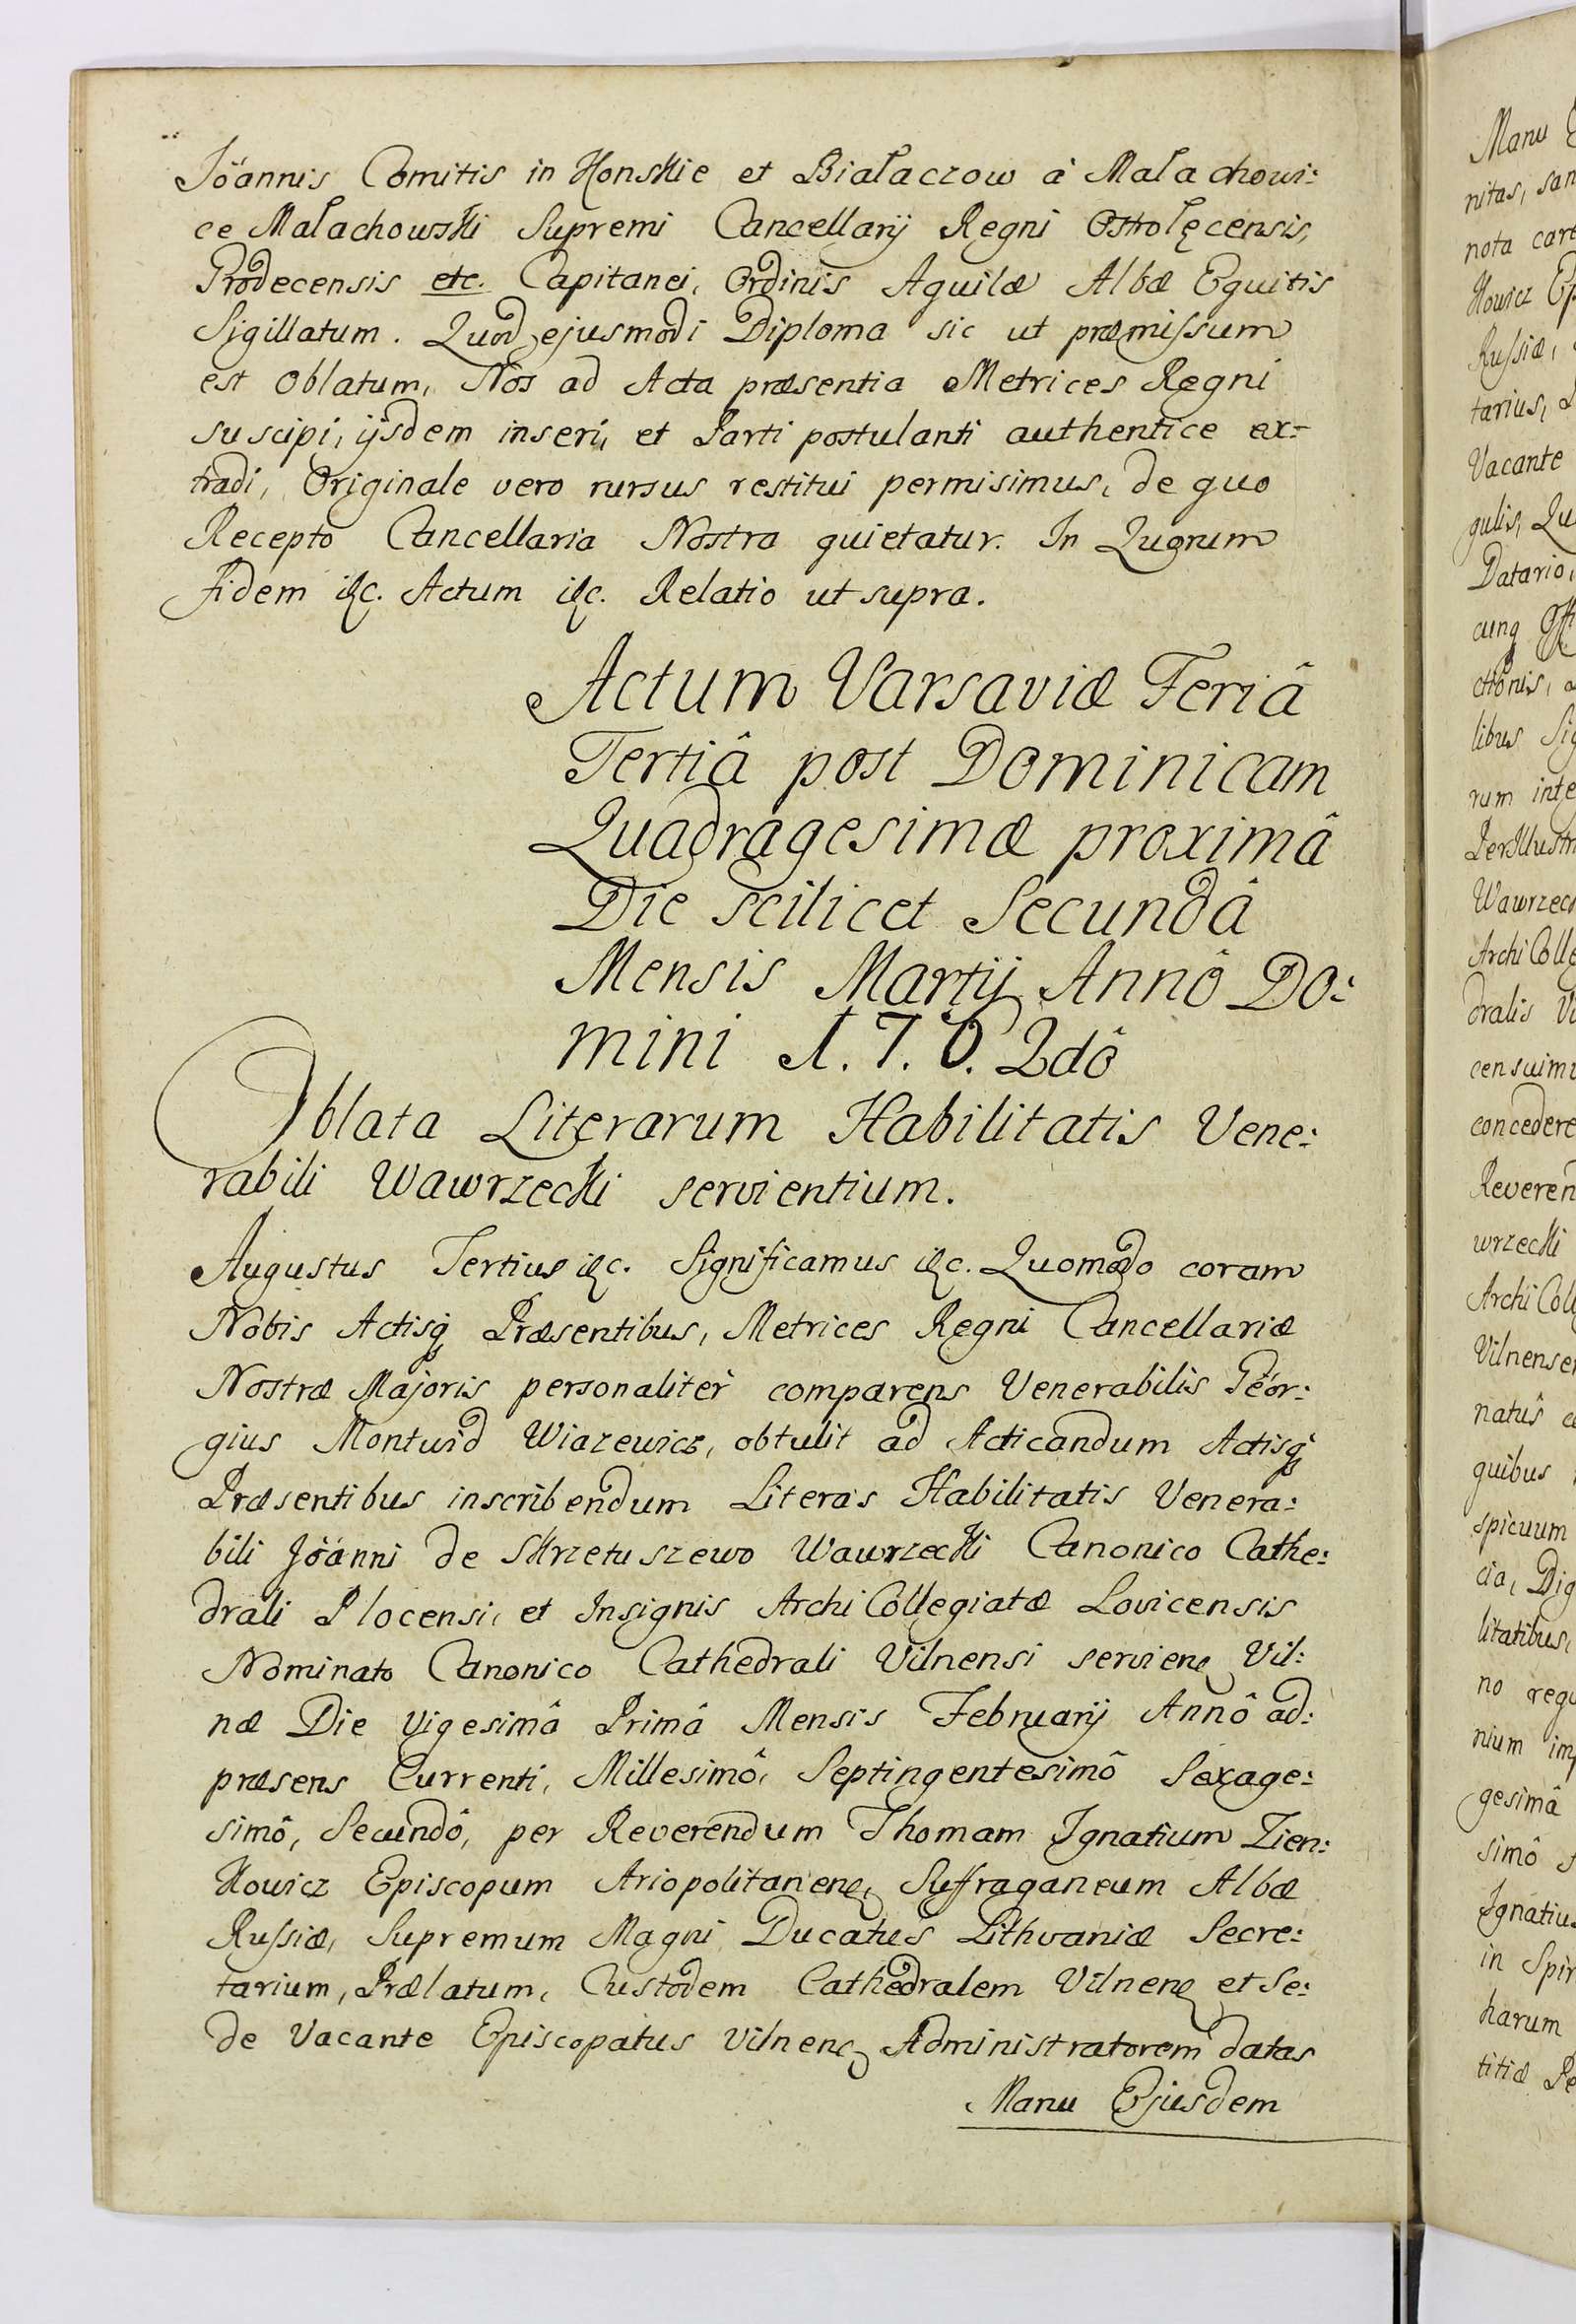 Joánnis Comitis in Konskie et Białaczow à Małachowi:
ce Małachowski Supremi Cancellarij Regni Ostrołęcensis,
Grodecensis etc. Capitanei, Ordinis Aquilæ Albæ Equitis
Sigillatum. Quod ejusmodi Diploma sic ut præmissum
est oblatum, Nos ad Acta præsentia Metrices Regni
suscipi, ijsdem inseri, et Parti postulanti authentice ex:
tradi, Originale vero rursus restitui permisimus, de quo
Recepto Cancellaria Nostra quietatur. In Quorum
Fidem &c. Actum &c. Relatio ut supra.
Actum Varsaviæ Feriâ
Tertiâ post Dominicam
Quadragesimæ proximâ
Die scilicet Secundâ
Mensis Martij Annô Do:
mini 1.7.6.2dô
Oblata Literarum Habilitatis Vene:
rabili Wawrzecki servientium.
Augustus Tertius &c. Significamus &c. Quomodo coram
Nobis Actisq Præsentibus, Metrices Regni Cancellariæ
Nostræ Majoris personaliter comparens Venerabilis Geór:
gius Montwid Wiazewicz, obtulit ad Acticandum Actisq
Præsentibus inscribendum Literas Habilitatis Venera:
bili Joánni de Skrzetuszewo Wawrzecki Canonico Cathe:
drali Plocensi, et Insignis Archi Collegiatæ Lovicensis
Nominato Canonico Cathedrali Vilnensi servienę Vil:
næ Die vigesimâ Primâ Mensis Februarij Annô ad:
præsens Currenti, Millesimô, Septingentesimô Sexage:
simô, Secundô, per Reverendum Thomam Ignatium Zien:
kowicz Episcopum Ariopolitanenę, Suffraganeum Albæ
Russiæ, Supremum Magni Ducatus Lithvaniæ Secre:
tarium, Prælatum, Custodem Cathedralem Vilnenę et Se:
de Vacante Episcopatus Vilnenę Administratorem datas
Manu Ejusdem
Manu
nitas, san
nota care
kowicz Ep
Russiæ,
tarius,
Vacante
gulis, Qu
Datario,
cunq Off
ctionis, a
libus Sig
rum inte
Perillustr
Wawrzec
Archi Colle
dralis Vi
censuimu
concedere
Reveren
wrzecki
Archi Coll
Vilnense
natûs
quibus
spicuum
cia, Dig
litatibus,
no regu
nium imp
gesimâ
simô
Ignatiu
in Spir
harum
titiæ Pe